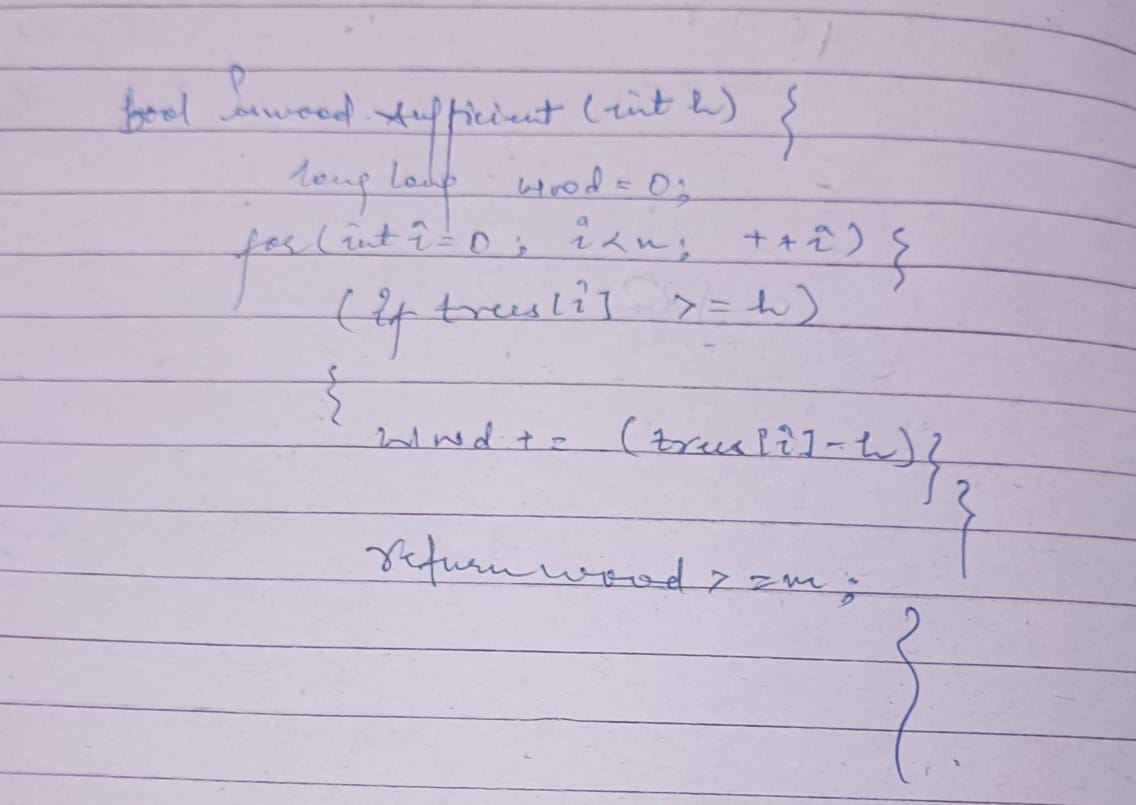 bool Iswood Sufficient (int h) {
long long wood = 0;
for (int i = 0; i < n; ++i) {
(if trees[i] >= h)
{
wood += (trees[i] - h)}
}
return wood >= m;
}